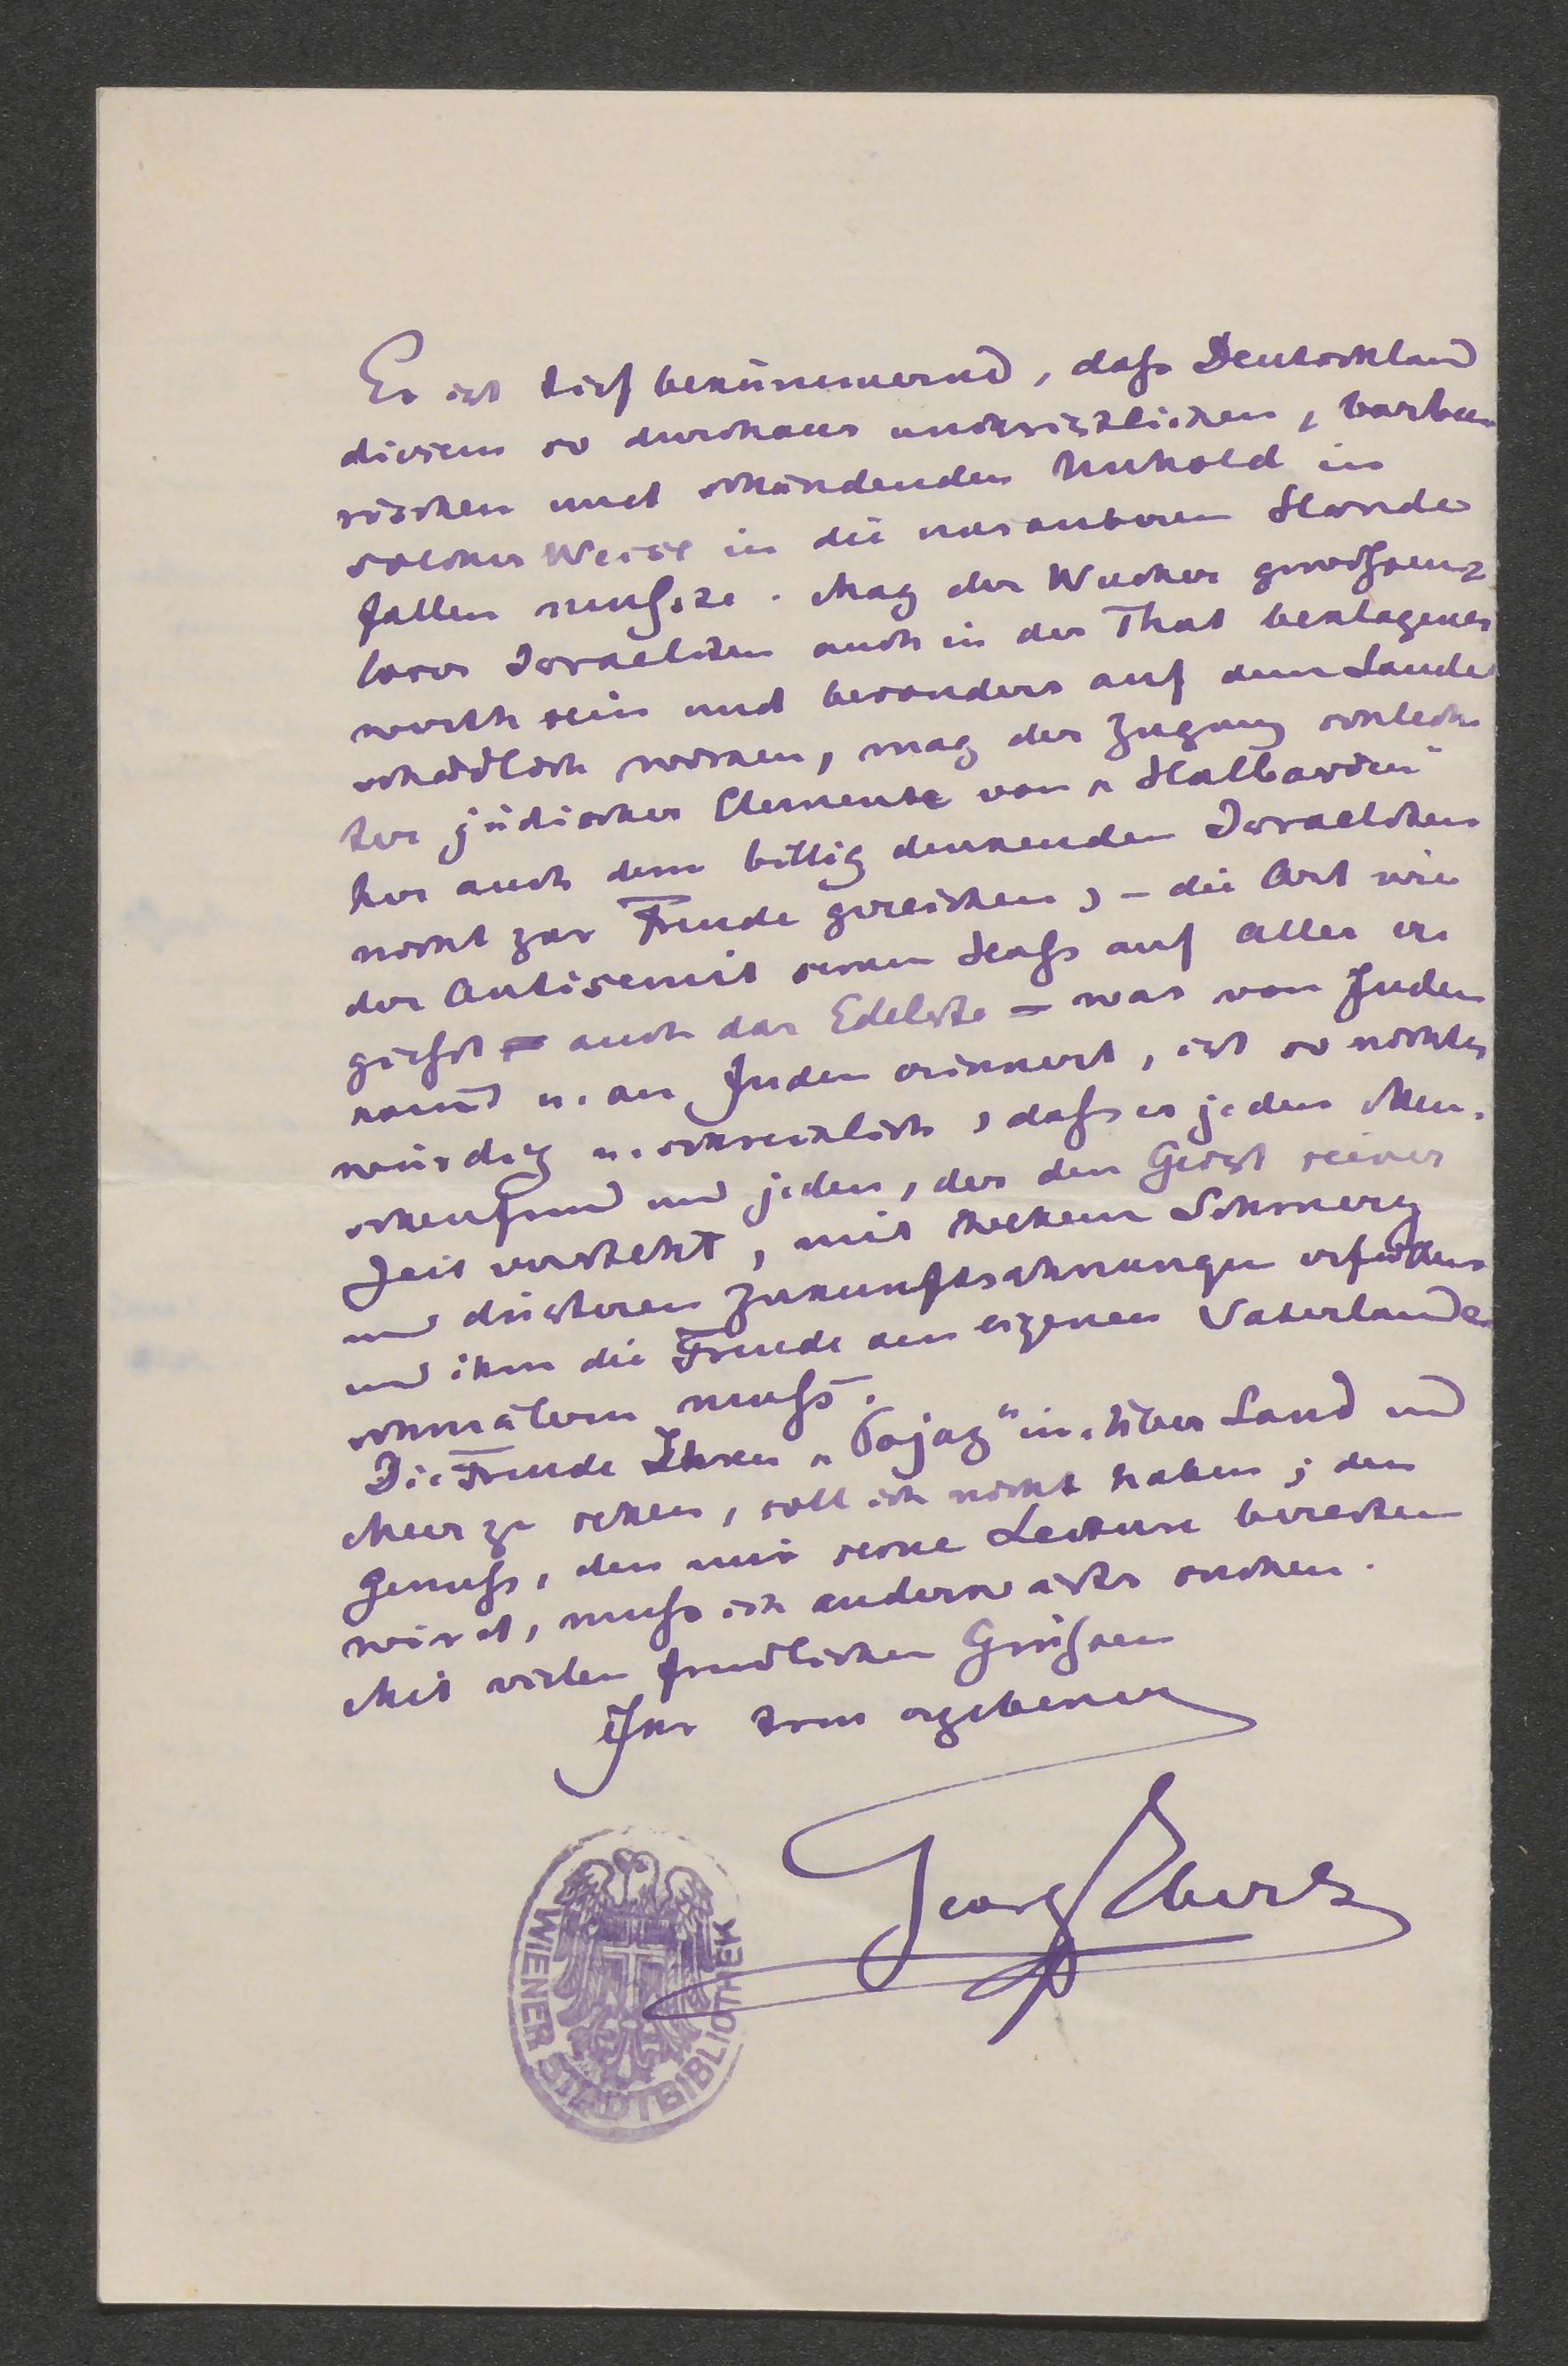 Es ist tief bekümmernd, dass Deutschland
diesem so durchaus unchristlichen, barba-
rischen und schändenden Unhold in
solcher Weise in die unsauberen Hände
fallen musste. Mag der Wucher gewissen-
loser Israeliten auch in der That beklagens
werth sein und besonders auf dem Lande
schädlich wirken, mag der Zugang schlech-
ter jüdischer Elemente von „Halbasien"
her auch dem billig denkenden Israeliten
nicht zur Freude gereichen, – die Art wie
der Antisemit seinen Hass auf alles er
giesst – auch das Edelste – was von Juden
kommt u. an Juden erinnert, ist so nichts
würdig u. schrecklich, dass es jeden Men-
schenfreund und jeden, der den Geist seiner
Zeit versteht, mit Schmerz
und düsteren Zukunftsahnungen erfüllen
und ihm die Freude am eigenen Vaterlande
schmälern muss.
Die Freude Ihren „Pojaz" in Über Land und
Meer zu sehen, soll ich nicht haben; den
Genuss, den mir seine Lectüre bereiten
wird, muss ich anderwärts suchen.
Mit vielen freundlichen Grüssen
Ihr treu ergebener
Georg Ebers
WIENER STADTBIBLIOTHEK